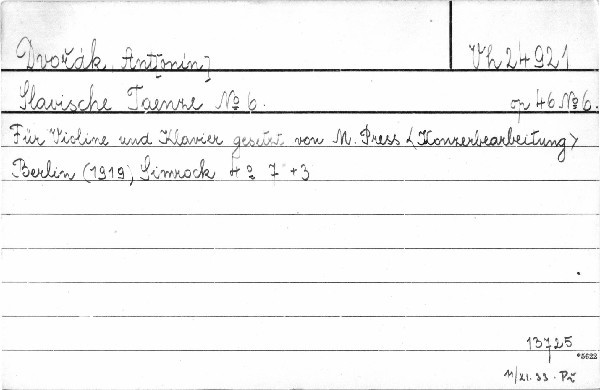 Dvořák, Ant[onín]
Vh 24921
Slavische Taenze No 6. op 46 No 6.
Für Violine und Klavier gesetzt von M. Press <Konzerbearbeitung>
Berlin (1919, Simrock 4o 7 + 3
13725
*5622
11/XI. 33. Př